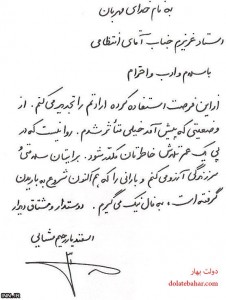 به نام خدای مهربان
استاد عزیزم جناب آقای انتظامی
با سلام و ادب و احترام
از این فرصت استفاده کرده ارادتم را تجدید می‌کنم. از
وضعیتی که پیش آمد خیلی متأثر شدم. روا نیست که در
پی یک عمر تلاش خاطرتان مکدر شود. برایتان سلامتی و
سرزندگی آرزو می‌کنم و بارانی را که هم اکنون شروع به باریدن
گرفته است، به فال نیک می‌گیرم. دوستدار و مشتاق دیدار
اسفندیار رحیم مشایی
دولت بهار
dolatebahar.com